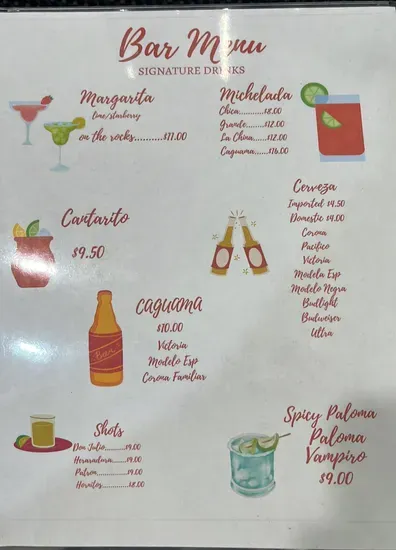 Bar Menu
SIGNATURE DRINKS
Margarita
lime/starberry
on the rocks..........$11.00
Michelada
Chica..........$8.00
Grande........$12.00
La China.....$12.00
Caguama......$16.00
Cantarito
$9.50
Cerveza
Imported $4.50
Domestic $4.00
Corona
Pacifico
Victoria
Modela Esp
Modelo Negra
Budlight
Budweiser
Ultra
caguama
$10.00
Victoria
Modelo Esp
Corona Familiar
Shots
Don Julio.........$9.00
Heraradura......$9.00
Patron............$9.00
Hornitos..........$8.00
Spicy Paloma
Paloma
Vampiro
$9.00